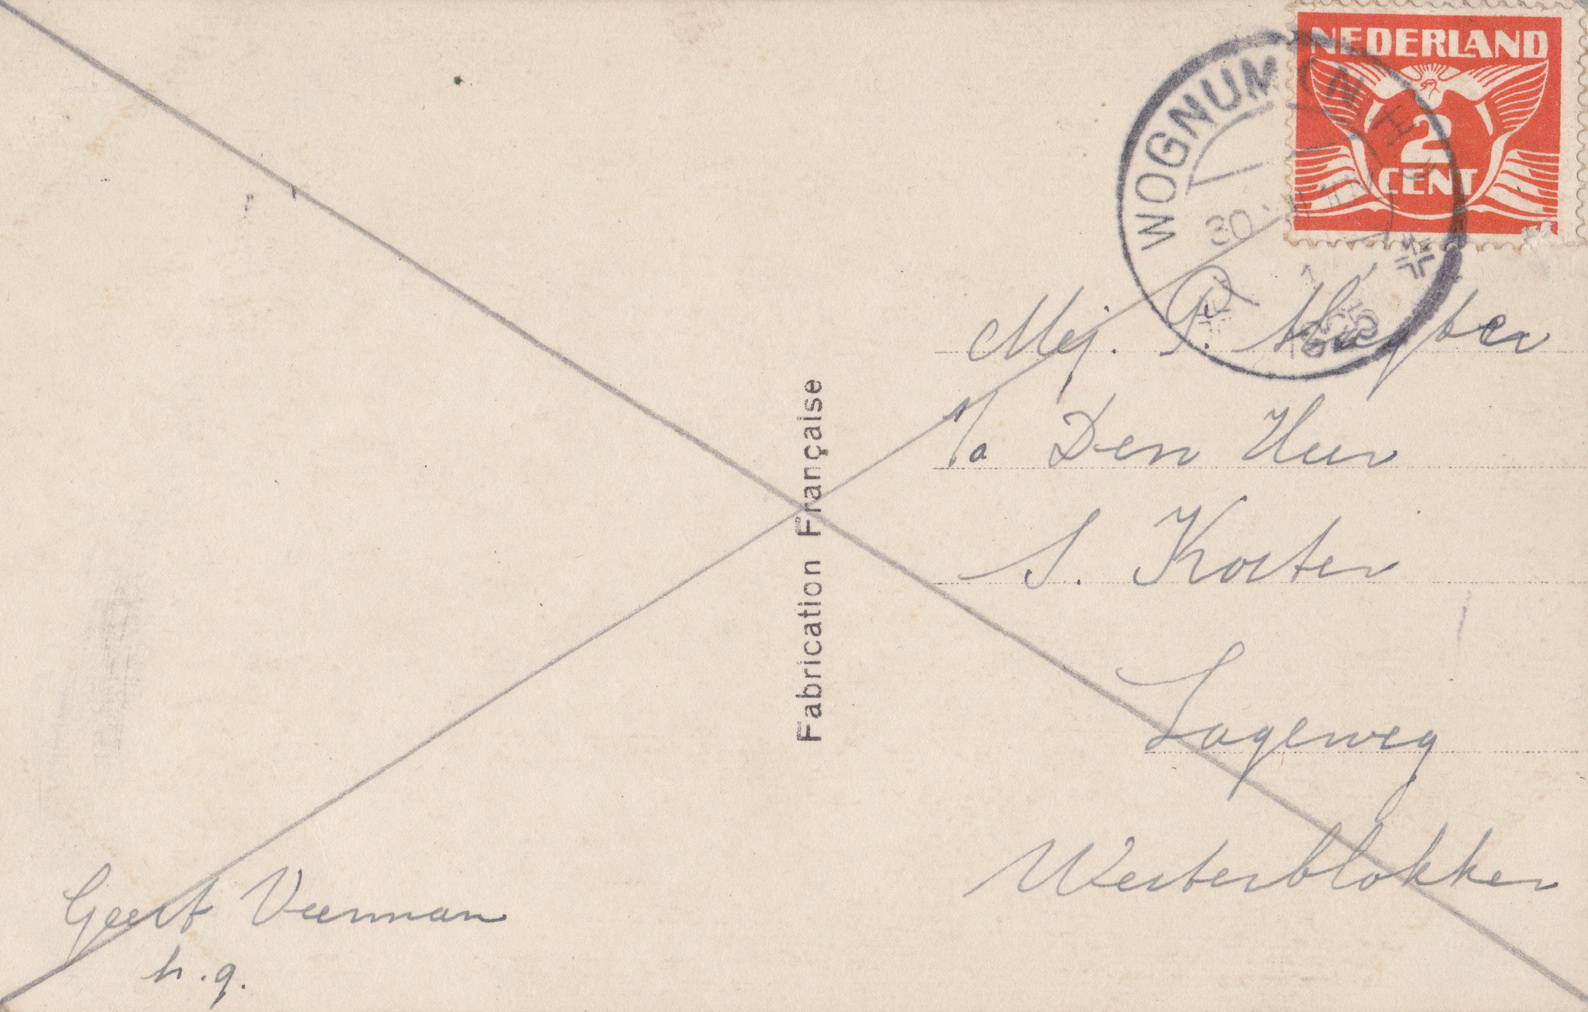 NEDERLAND
2
CENT
WOGNUM (N.H.)
30
Mej.
Den Heer
S. Koster
Lageweg
Westerblokker
Fabrication Française
Geert Veerman
h.g.